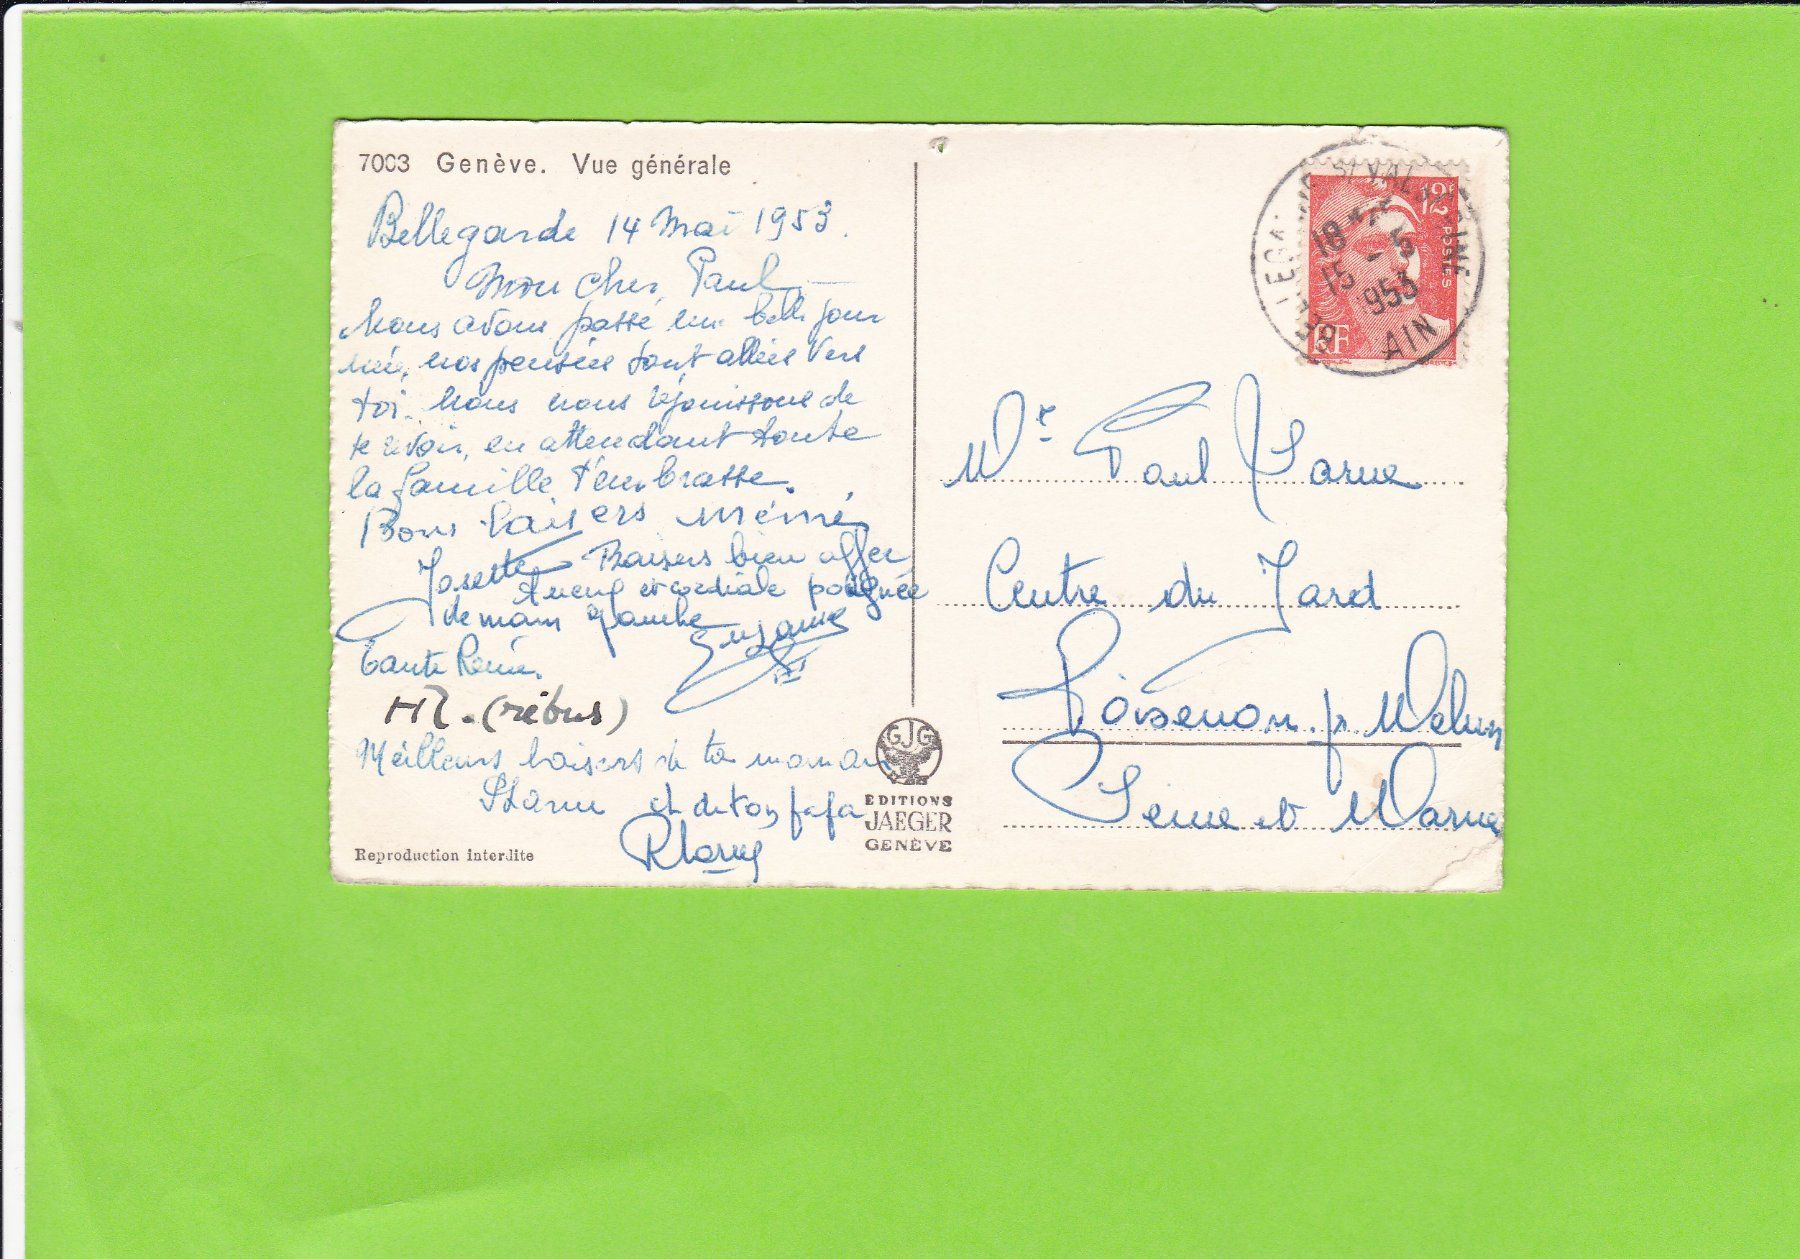 7003 Genève. Vue générale
Bellegarde 14 Mai 1953.
Mon cher Paul,
Nous avons passé une belle jour
née, nos pensées sont allées vers
toi. Nous nous réjouissons de
te revoir, en attendant toute
la famille t'embrasse.
Bons baisers Mémé
Josette Baisers bien affec
tueux et cordiale poignée
de main gauche
Suzanne
Tante Renée.
HR. (rébus)
Meilleurs baisers de ta maman
et de ton papa
Reproduction interdite
GJG
EDITIONS
JAEGER
GENÈVE
BELLEGARDE S/ VALSERINE
18
15 - 5
1953
AIN
12F
POSTES
RF
Mr Paul Larue
Centre du Jard
Voisenon p. Melun
Seine et Marne